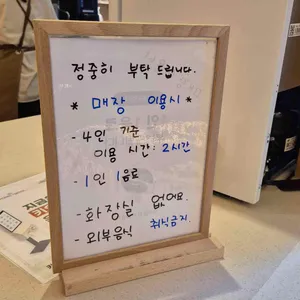 정중히 부탁 드립니다.
* 매장 이용시 *
- 4인 기준
이용 시간: 2시간
- 1인 1음료
- 화장실 없어요.
- 외부음식 취식금지.